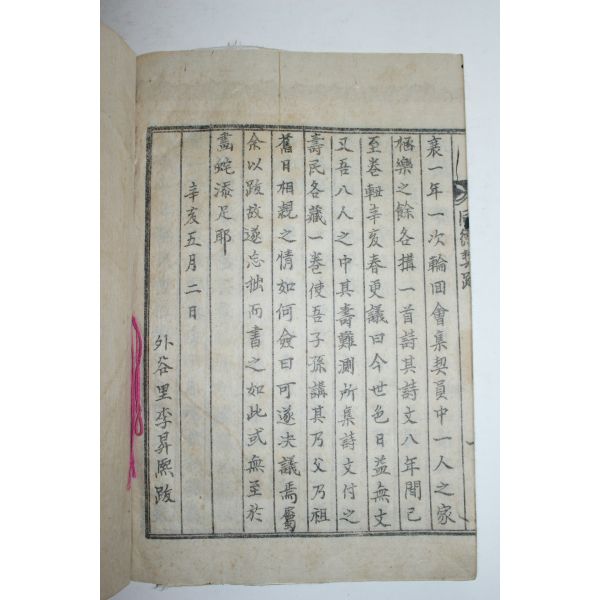 衰一年一次輪回會集契員中一人之家
極樂之餘各搆一首詩其詩文八年間已
至卷輯辛亥春更議曰今世色日益無文
又吾八人之中其壽難測所集詩文付之
壽民各藏一卷使吾子孫講其乃父乃祖
舊日相親之情如何僉曰可遂决議焉屬
余以跋故遂忘拙而書之如此或無至於
畵蛇添足耶
辛亥五月二日
外谷里李昇熙跋
同德契跋